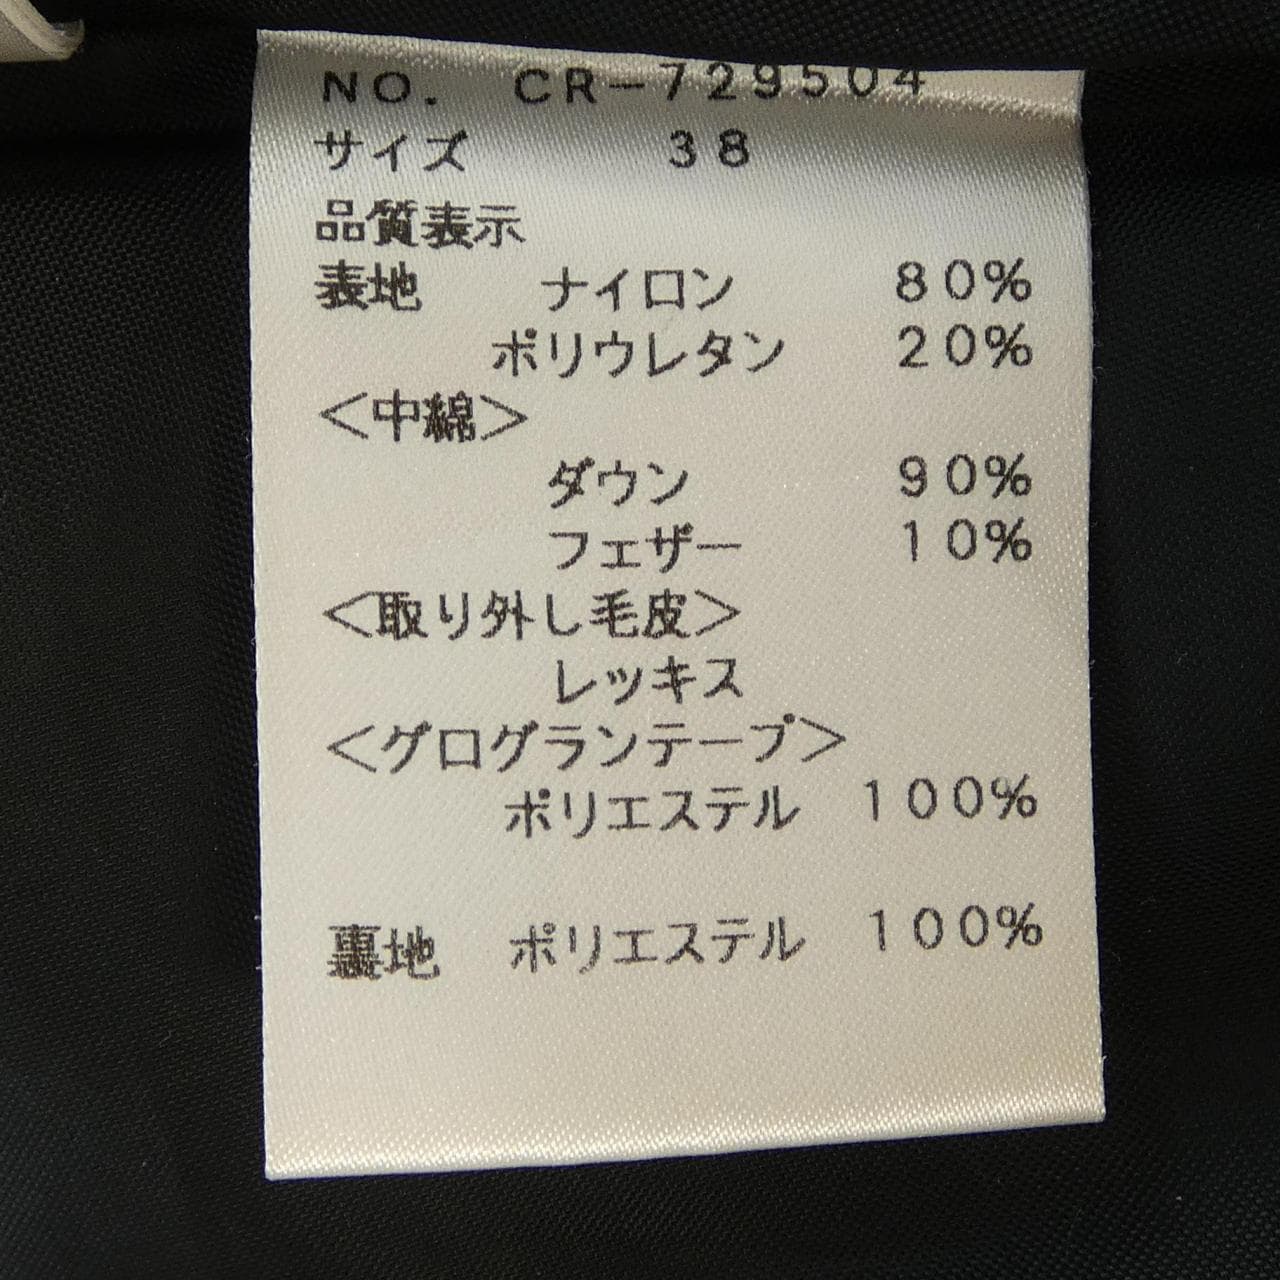 NO. CR-729504
サイズ 38
品質表示
表地 ナイロン 80%
ポリウレタン 20%
<中綿>
ダウン 90%
フェザー 10%
<取り外し毛皮>
レッキス
<グログランテープ>
ポリエステル 100%
裏地 ポリエステル 100%